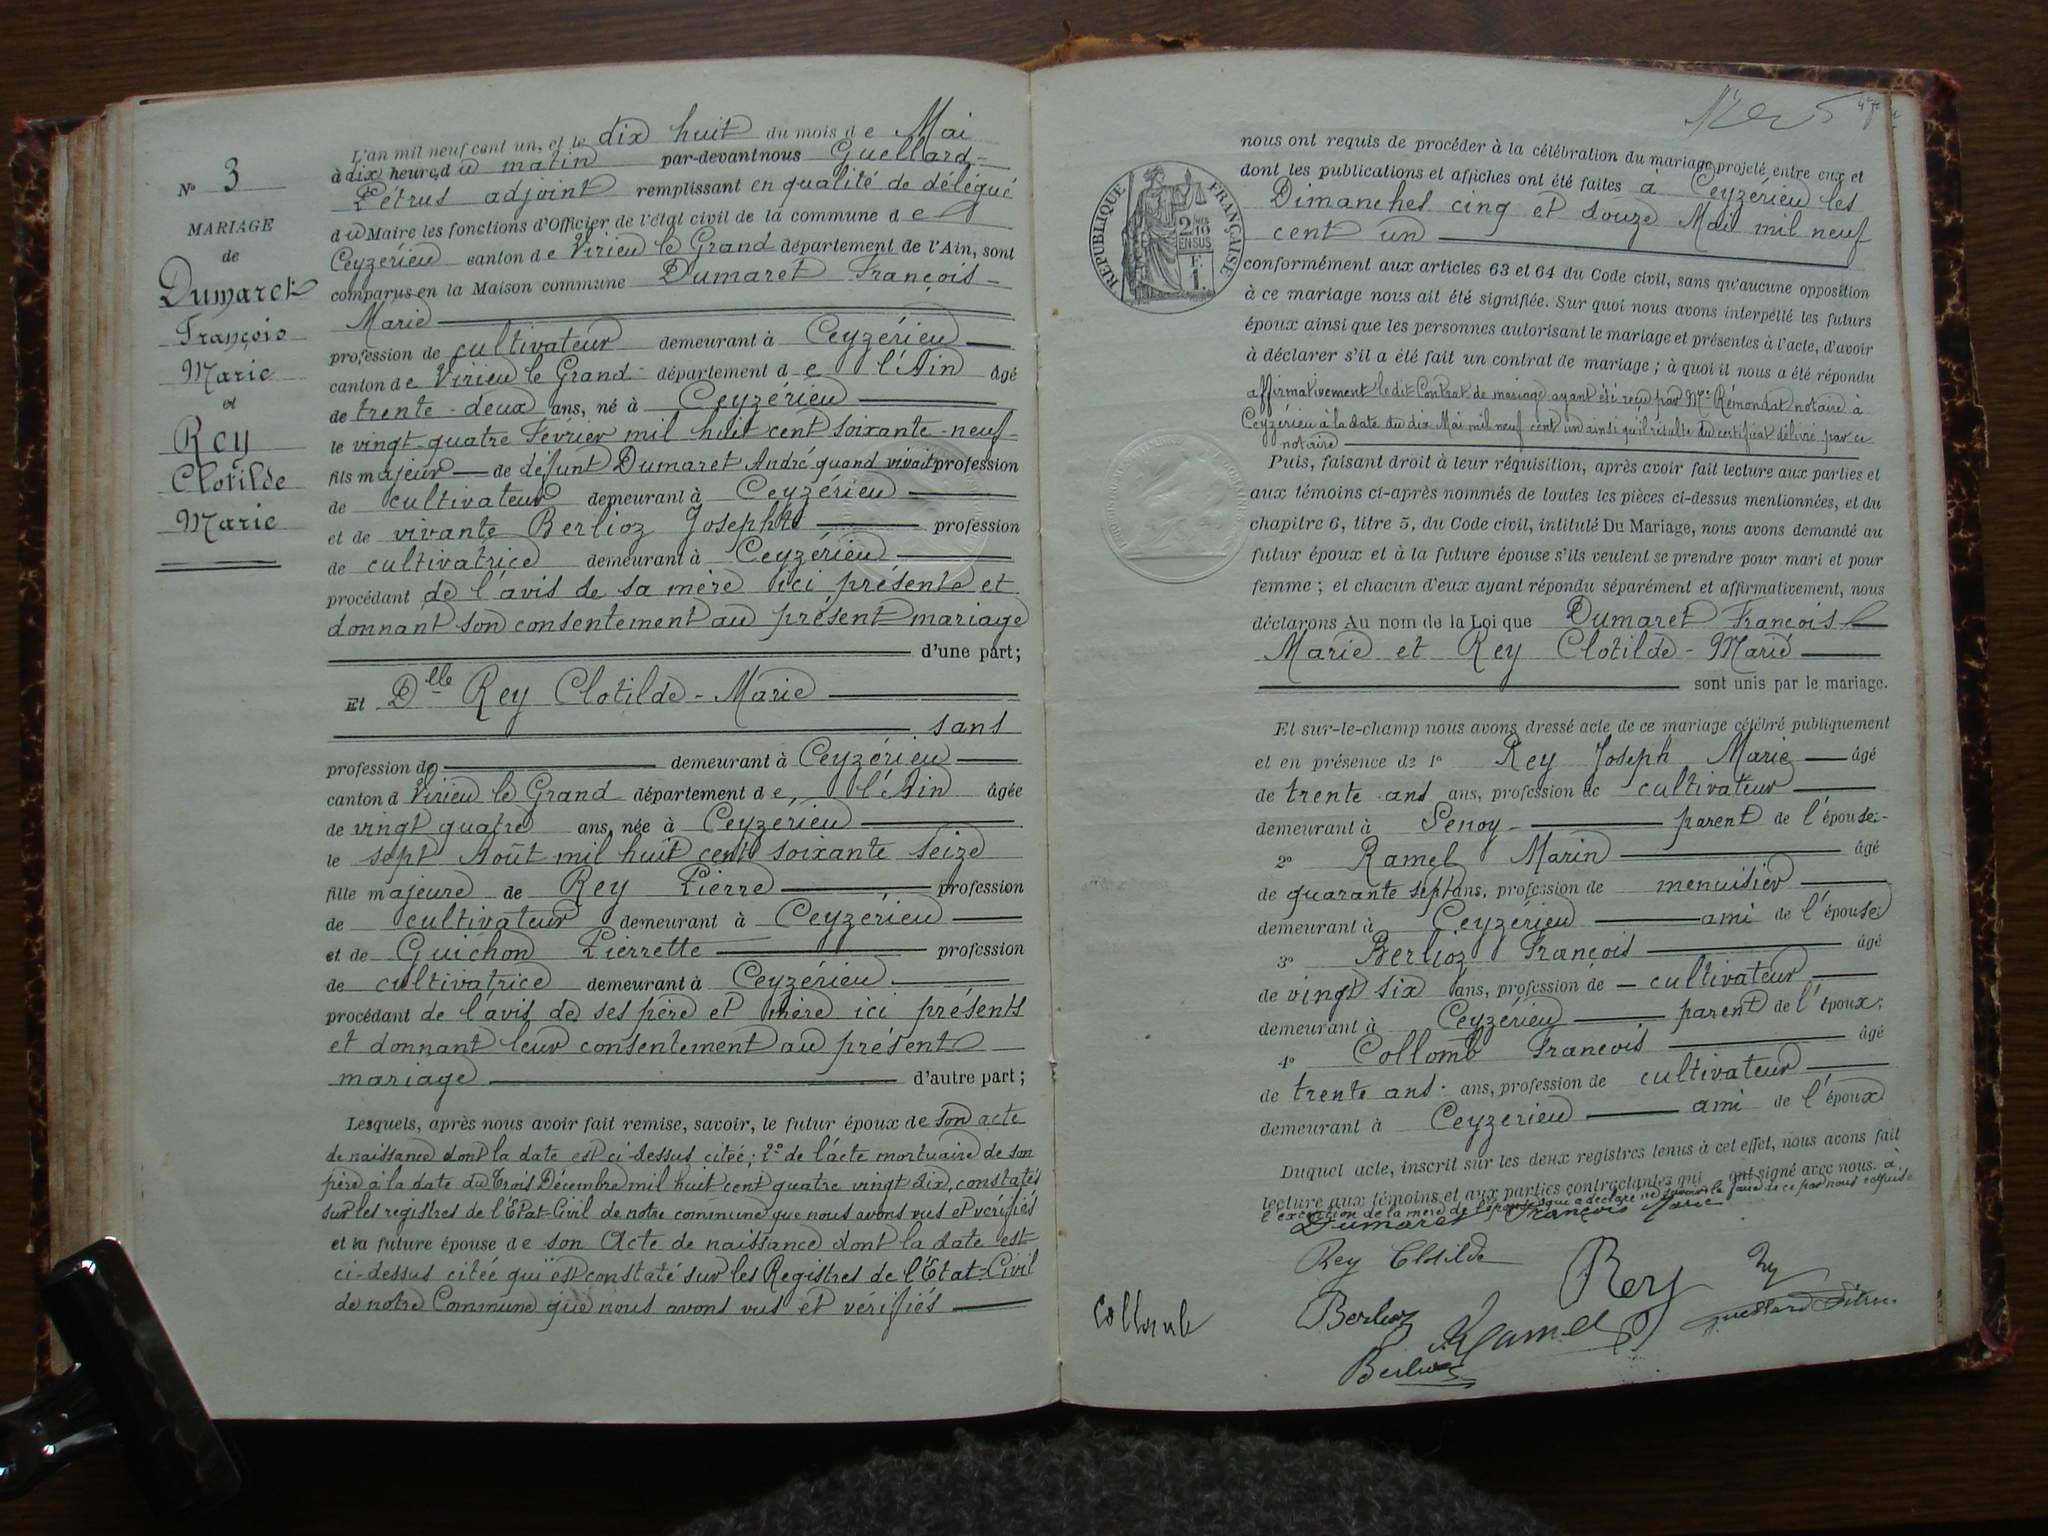 N° 3
MARIAGE
de
Dumaret
François
Marie
et
Rey
Clotilde
Marie
L'an mil neuf cent un, et le dix huit du mois de Mai
à dix heures du matin par-devant nous Guellard
Pétrus adjoint remplissant en qualité de délégué
du Maire les fonctions d'Officier de l'état civil de la commune de
Ceyzérieu canton de Virieu le Grand département de l'Ain, sont
comparus en la Maison commune Dumaret François
Marie
profession de cultivateur demeurant à Ceyzérieu
canton de Virieu le Grand département de l'Ain âgé
de trente-deux ans, né à Ceyzérieu
le vingt-quatre Février mil huit cent soixante-neuf
fils majeur de défunt Dumaret André quand vivait profession
de cultivateur demeurant à Ceyzérieu
et de vivante Berlioz Josephte profession
de cultivatrice demeurant à Ceyzérieu
procédant de l'avis de sa mère ici présente et
donnant son consentement au présent mariage
d'une part;
Et Dlle Rey Clotilde-Marie
sans
profession de demeurant à Ceyzérieu
canton d Virieu le Grand département de l'Ain âgée
de vingt quatre ans, née à Ceyzérieu
le sept Août mil huit cent soixante seize
fille majeure de Rey Pierre profession
de cultivateur demeurant à Ceyzérieu
et de Guichon Pierrette profession
de cultivatrice demeurant à Ceyzérieu
procédant de l'avis de ses père et mère ici présents
et donnant leur consentement au présent
mariage d'autre part;
Lesquels, après nous avoir fait remise, savoir, le futur époux de son acte
de naissance dont la date est ci-dessus citée; 2° de l'acte mortuaire de son
père à la date du Trois Décembre mil huit cent quatre vingt dix, constatés
sur les registres de l'Etat-Civil de notre commune que nous avons vus et vérifiés
et la future épouse de son Acte de naissance dont la date est
ci-dessus citée qui est constaté sur les Registres de l'Etat-Civil
de notre Commune que nous avons vus et vérifiés
47
RÉPUBLIQUE FRANÇAISE
2/10 EN SUS
F.
1.
nous ont requis de procéder à la célébration du mariage projeté entre eux et
dont les publications et affiches ont été faites à Ceyzerieu les
Dimanches cinq et douze Mai mil neuf
cent un
conformément aux articles 63 et 64 du Code civil, sans qu'aucune opposition
à ce mariage nous ait été signifiée. Sur quoi nous avons interpellé les futurs
époux ainsi que les personnes autorisant le mariage et présentes à l'acte, d'avoir
à déclarer s'il a été fait un contrat de mariage; à quoi il nous a été répondu
affirmativement ledit Contrat de mariage ayant été reçu par Me Rémondat notaire à
Ceyzérieu à la date du dix Mai mil neuf cent un ainsi qu'il résulte du certificat délivré par ce
notaire
Puis, faisant droit à leur réquisition, après avoir fait lecture aux parties et
aux témoins ci-après nommés de toutes les pièces ci-dessus mentionnées, et du
chapitre 6, titre 5, du Code civil, intitulé Du Mariage, nous avons demandé au
futur époux et à la future épouse s'ils veulent se prendre pour mari et pour
femme; et chacun d'eux ayant répondu séparément et affirmativement, nous
déclarons Au nom de la Loi que Dumaret François
Marie et Rey Clotilde-Marie
sont unis par le mariage.
Et sur-le-champ nous avons dressé acte de ce mariage célébré publiquement
et en présence de 1° Rey Joseph Marie âgé
de trente ans ans, profession de cultivateur
demeurant à parent de l'épouse;
2° Ramel Marin âgé
de quarante sept ans, profession de menuisier
demeurant à Ceyzérieu ami de l'épouse;
3° Berlioz François âgé
de vingt six ans, profession de cultivateur
demeurant à Ceyzérieu parent de l'époux;
4° Collomb François âgé
de trente ans ans, profession de cultivateur
demeurant à Ceyzerieu ami de l'époux
Duquel acte, inscrit sur les deux registres tenus à cet effet, nous avons fait
lecture aux témoins et aux parties contractantes qui ont signé avec nous. à
l'exception de la mère de l'épouse que a déclaré ne savoir le faire de ce par nous requise
Dumaret François Marie
Rey Clotilde
Rey
Rey
Collomb
Berlioz
Ramel
Guellard Pétrus
Berlioz